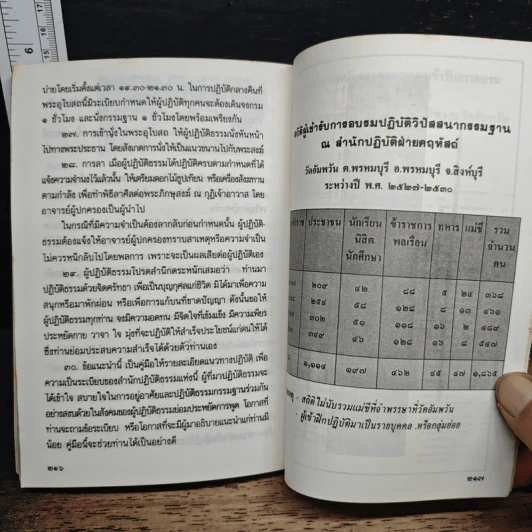 บ่ายโดยเริ่มตั้งแต่เวลา ๑๙.๓๐-๒๑.๓๐ น. ในการปฏิบัติกลางคืนที่
พระอุโบสถนี้มีระเบียบกำหนดให้ผู้ปฏิบัติทุกคนจะต้องเดินจงกรม
๑ ชั่วโมง และนั่งกรรมฐาน ๑ ชั่วโมงโดยพร้อมเพรียงกัน
๒๗. การเข้านั่งในพระอุโบสถ ให้ผู้ปฏิบัติธรรมนั่งหันหน้า
ไปทางพระประธาน โดยสังเกตการนั่งให้เป็นแนวขนานไปกับพระสงฆ์
๒๘. การลา เมื่อผู้ปฏิบัติธรรมได้ปฏิบัติครบตามกำหนดที่ได้
แจ้งความจำนงไว้แล้วนั้น ให้เตรียมดอกไม้ธูปเทียน หรือเครื่องสังฆทาน
ตามกำลัง เพื่อทำพิธีลาศีลต่อพระภิกษุสงฆ์ ณ กุฏิเจ้าอาวาส โดย
อาจารย์ผู้ปกครองเป็นผู้นำไป
ในกรณีที่มีความจำเป็นต้องลากลับก่อนกำหนดนั้น ผู้ปฏิบัติ-
ธรรมต้องแจ้งให้อาจารย์ผู้ปกครองทราบสาเหตุหรือความจำเป็น
ไม่ควรหนีกลับไปโดยพลการ เพราะจะเป็นผลเสียต่อผู้ปฏิบัติเอง
๒๙. ผู้ปฏิบัติธรรมโปรดสำนึกตระหนักเสมอว่า ท่านมา
ปฏิบัติธรรมด้วยจิตศรัทธา เพื่อเป็นบุญกุศลแก่ชีวิต มิได้มาเพื่อความ
สนุกหรือมาพักผ่อน หรือเพื่อการแก้บนที่ขาดปัญญา ดังนั้นขอให้
ผู้ปฏิบัติธรรมทุกท่าน จงมีความอดทน มีจิตใจที่เข้มแข็ง มีความเพียร
ประหยัดกาย วาจา ใจ มุ่งที่จะปฏิบัติให้สำเร็จประโยชน์แก่ตนให้ได้
ซึ่งท่านย่อมประสบความสำเร็จได้ด้วยตัวท่านเอง
๓๐. ข้อแนะนำนี้ เป็นคู่มือให้รายละเอียดแนวทางปฏิบัติ เพื่อ
ความเป็นระเบียบของสำนักปฏิบัติธรรมแห่งนี้ ผู้ที่มาปฏิบัติธรรมจะ
ได้เข้าใจ สบายใจในการอยู่อาศัยและปฏิบัติธรรมกรรมฐานร่วมกัน
อย่างสงบด้วยในสังคมของผู้ปฏิบัติธรรมย่อมประหยัดการพูด โอกาสที่
ท่านจะถามข้อระเบียบ หรือโอกาสที่จะมีผู้มาอธิบายแนะนำแก่ท่านมี
น้อย คู่มือนี้จะช่วยท่านได้เป็นอย่างดี
๒๑๖
ผู้เข้ารับการอบรมปฏิบัติวิปัสสนากรรมฐาน
ณ สำนักปฏิบัติฝ่ายคฤหัสถ์
วัดอัมพวัน ต.พรหมบุรี อ.พรหมบุรี จ.สิงห์บุรี
ระหว่างปี พ.ศ. ๒๕๒๗-๒๕๓๐
ประชาชน นักเรียน นิสิต นักศึกษา ข้าราชการ พลเรือน ทหาร แม่ชี รวม จำนวน คน
๒๐๙ ๔๒ ๘๘ ๕ ๒๔ ๓๖๘
๒๕๔ ๕๘ ๑๒๘ ๘
๓๐๒ ๕๑ ๑๑๘ ๑๖ ๒
๓๔๙ ๔๖ ๑๒๘ ๑๖ ๘ ๕๔๗
๑,๑๑๔ ๑๙๗ ๔๖๒ ๔๕ ๔๗ ๑,๘๖๕
- สถิติไม่นับรวมแม่ชีที่จำพรรษาที่วัดอัมพวัน
ผู้เข้าฝึกปฏิบัติมาเป็นรายบุคคล หรือกลุ่มย่อย
๒๑๗
6
5